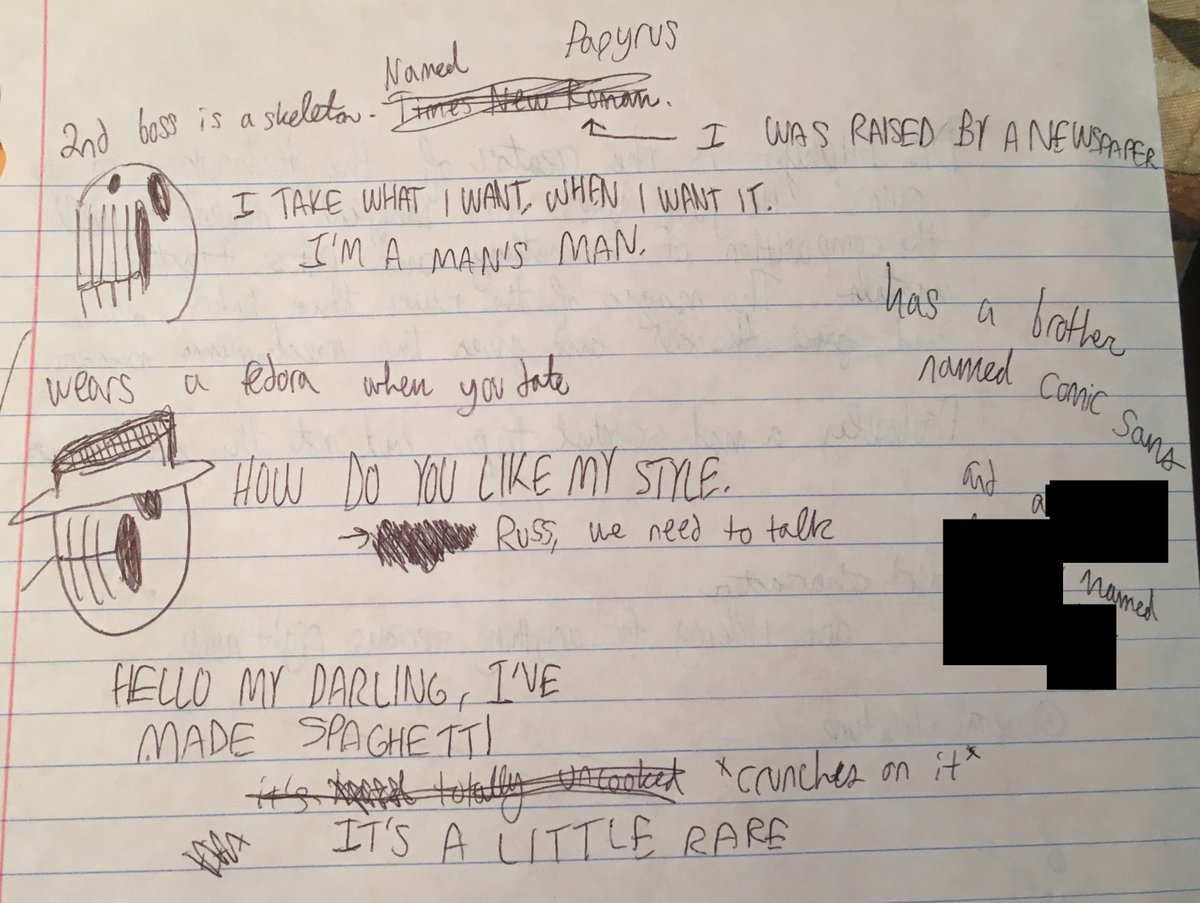 Papyrus
Named
2nd boss is a skeleton. Times New Roman.
I WAS RAISED BY A NEWSPAAPER
I TAKE WHAT I WANT, WHEN I WANT IT.
I'M A MAN'S MAN.
has a brother
named Comic Sans
wears a fedora when you date
HOW DO YOU LIKE MY STYLE.
and a
Russ, we need to talk
named
HELLO MY DARLING, I'VE
MADE SPAGHETTI
it's totally uncooked *crunches on it*
IT'S A LITTLE RARE